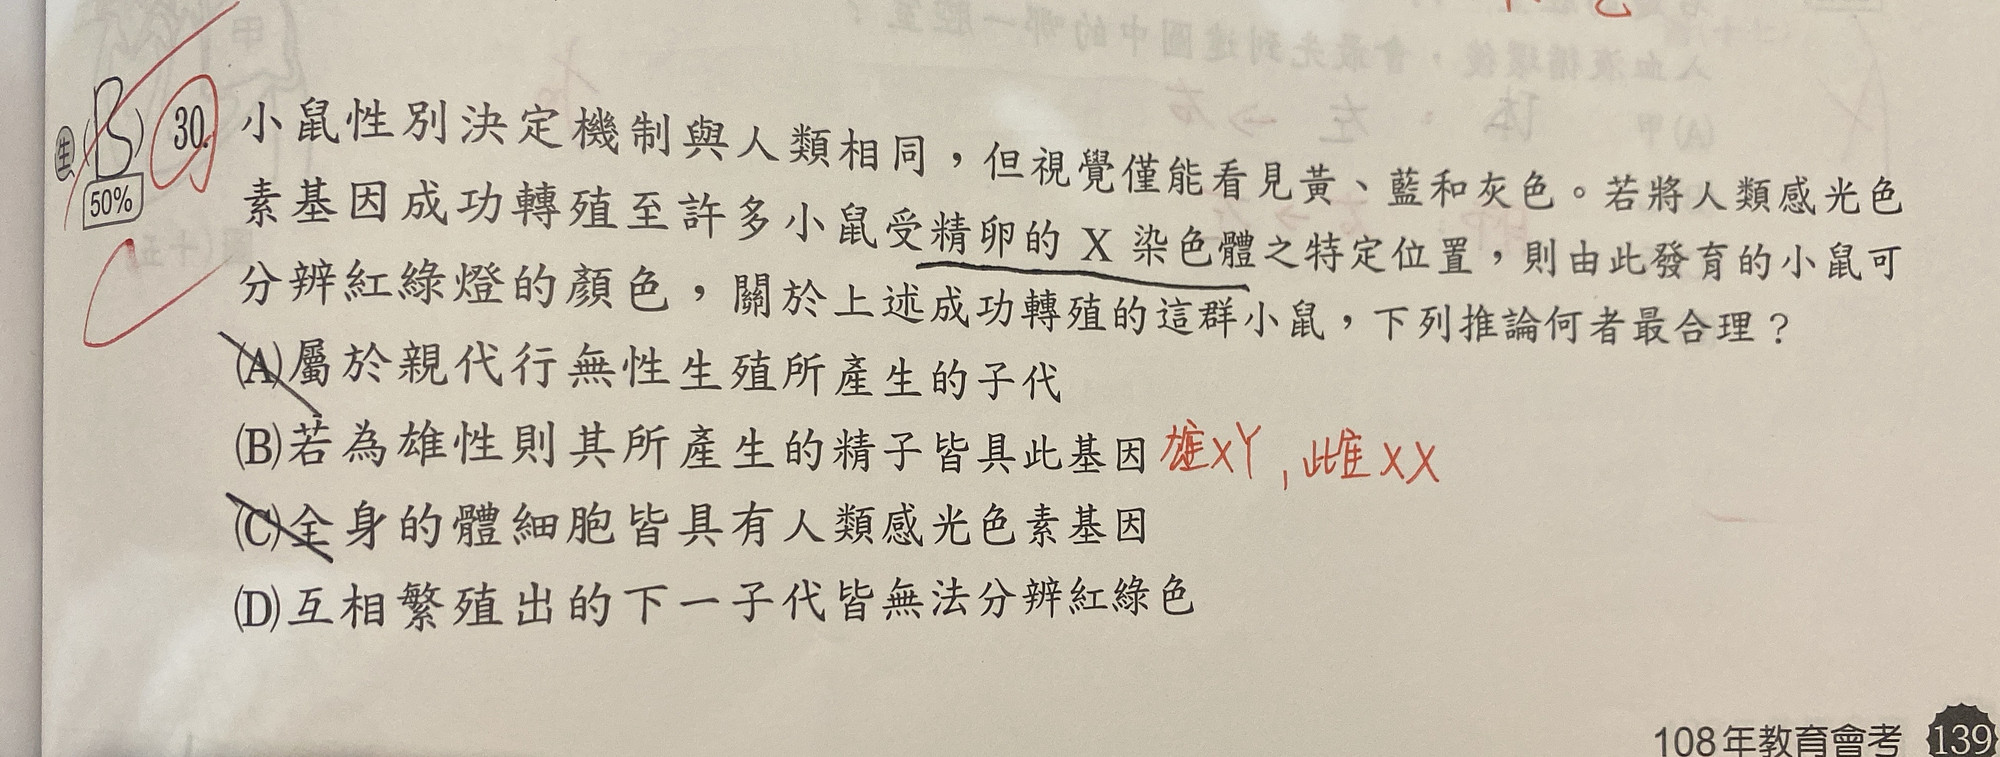 生 (B) 30. 小鼠性別決定機制與人類相同，但視覺僅能看見黃、藍和灰色。若將人類感光色
50% 素基因成功轉殖至許多小鼠受精卵的 X 染色體之特定位置，則由此發育的小鼠可
C 分辨紅綠燈的顏色，關於上述成功轉殖的這群小鼠，下列推論何者最合理？
(A)屬於親代行無性生殖所產生的子代
(B)若為雄性則其所產生的精子皆具此基因 雄XY，雌XX
(C)全身的體細胞皆具有人類感光色素基因
(D)互相繁殖出的下一子代皆無法分辨紅綠色
108年教育會考 139